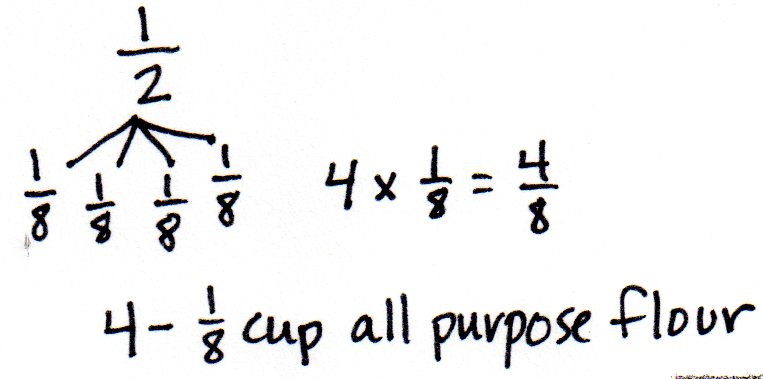 1/2
1/8 1/8 1/8 1/8 4 x 1/8 = 4/8
4 - 1/8 cup all purpose flour